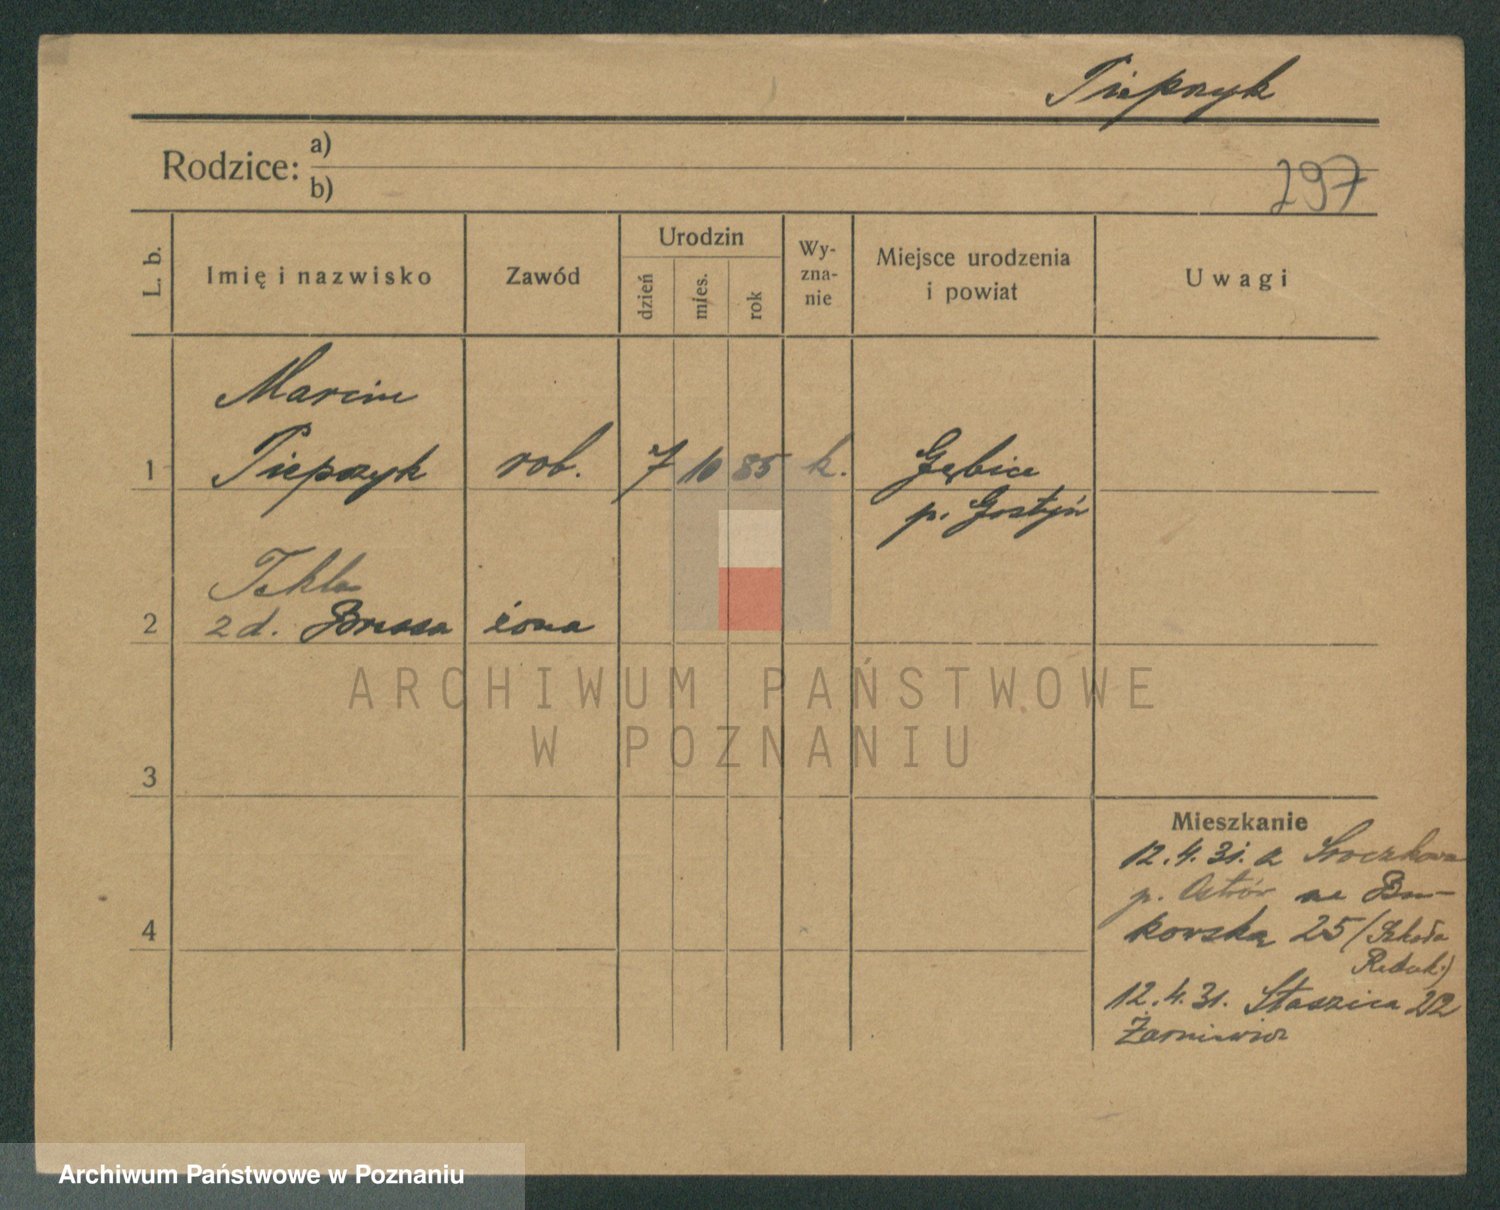 Piepszyk
Rodzice: a)
b)
297
L. b.
Imię i nazwisko
Zawód
Urodzin
dzień
mies.
rok
Wy-
zna-
nie
Miejsce urodzenia
i powiat
Uwagi
Marcin
1 Piepszyk rob. 7 10 85 k. Gębice
p. Gostyń
Tekla
2 zd. żona
3
4
Mieszkanie
12.4.31. z
p. Ostrów na Bu-
kowska 25 (Szkoła
12.4.31. Staszica 22
ARCHIWUM PAŃSTWOWE
W POZNANIU
Archiwum Państwowe w Poznaniu